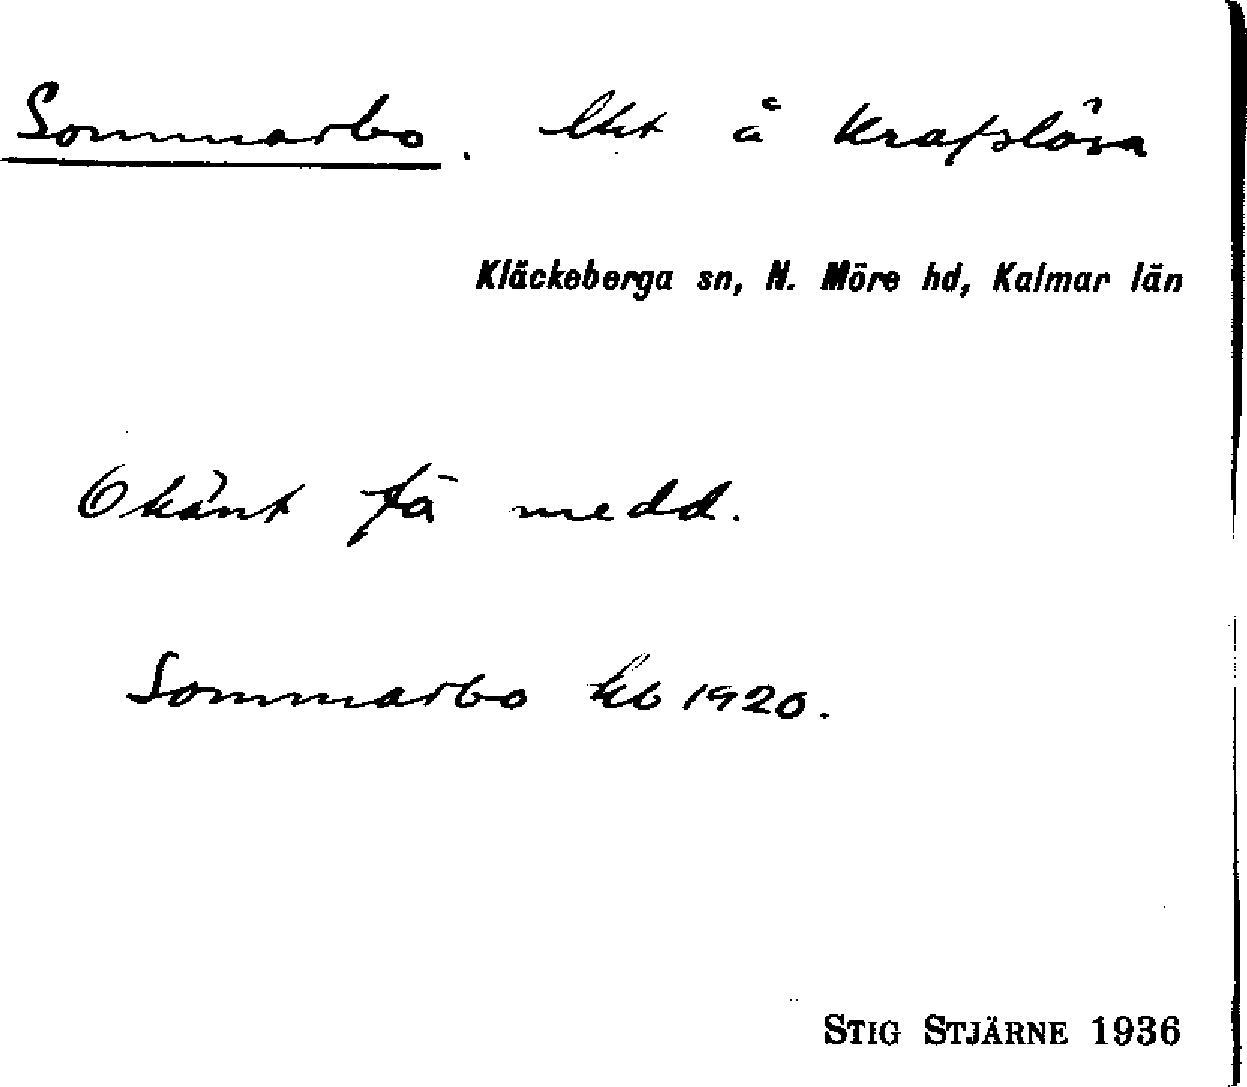 Sommarbo. Lht å Krafslösa
Kläckeberga sn, N. Möre hd, Kalmar län
Okänt fö medd.
Sommarbo kb 1920.
STIG STJÄRNE 1936